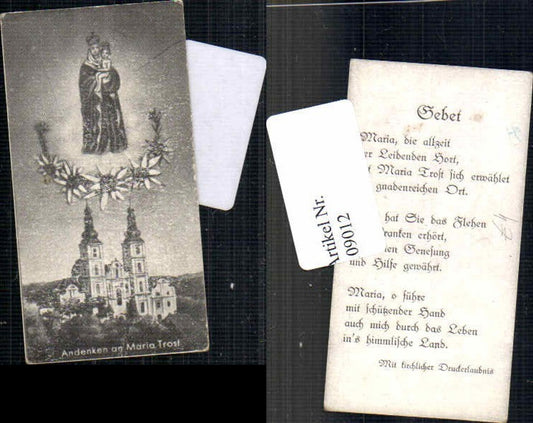 Andenken an Maria Trost
Artikel Nr.
09012
Gebet
Maria, die allzeit
er Leidenden Hort,
Maria Trost sich erwählet
gnadenreichen Ort.
hat Sie das Flehen
ranken erhört,
en Genesung
und Hilfe gewährt.
Maria, o führe
mit schützender Hand
auch mich durch das Leben
in's himmlische Land.
Mit kirchlicher Druckerlaubnis